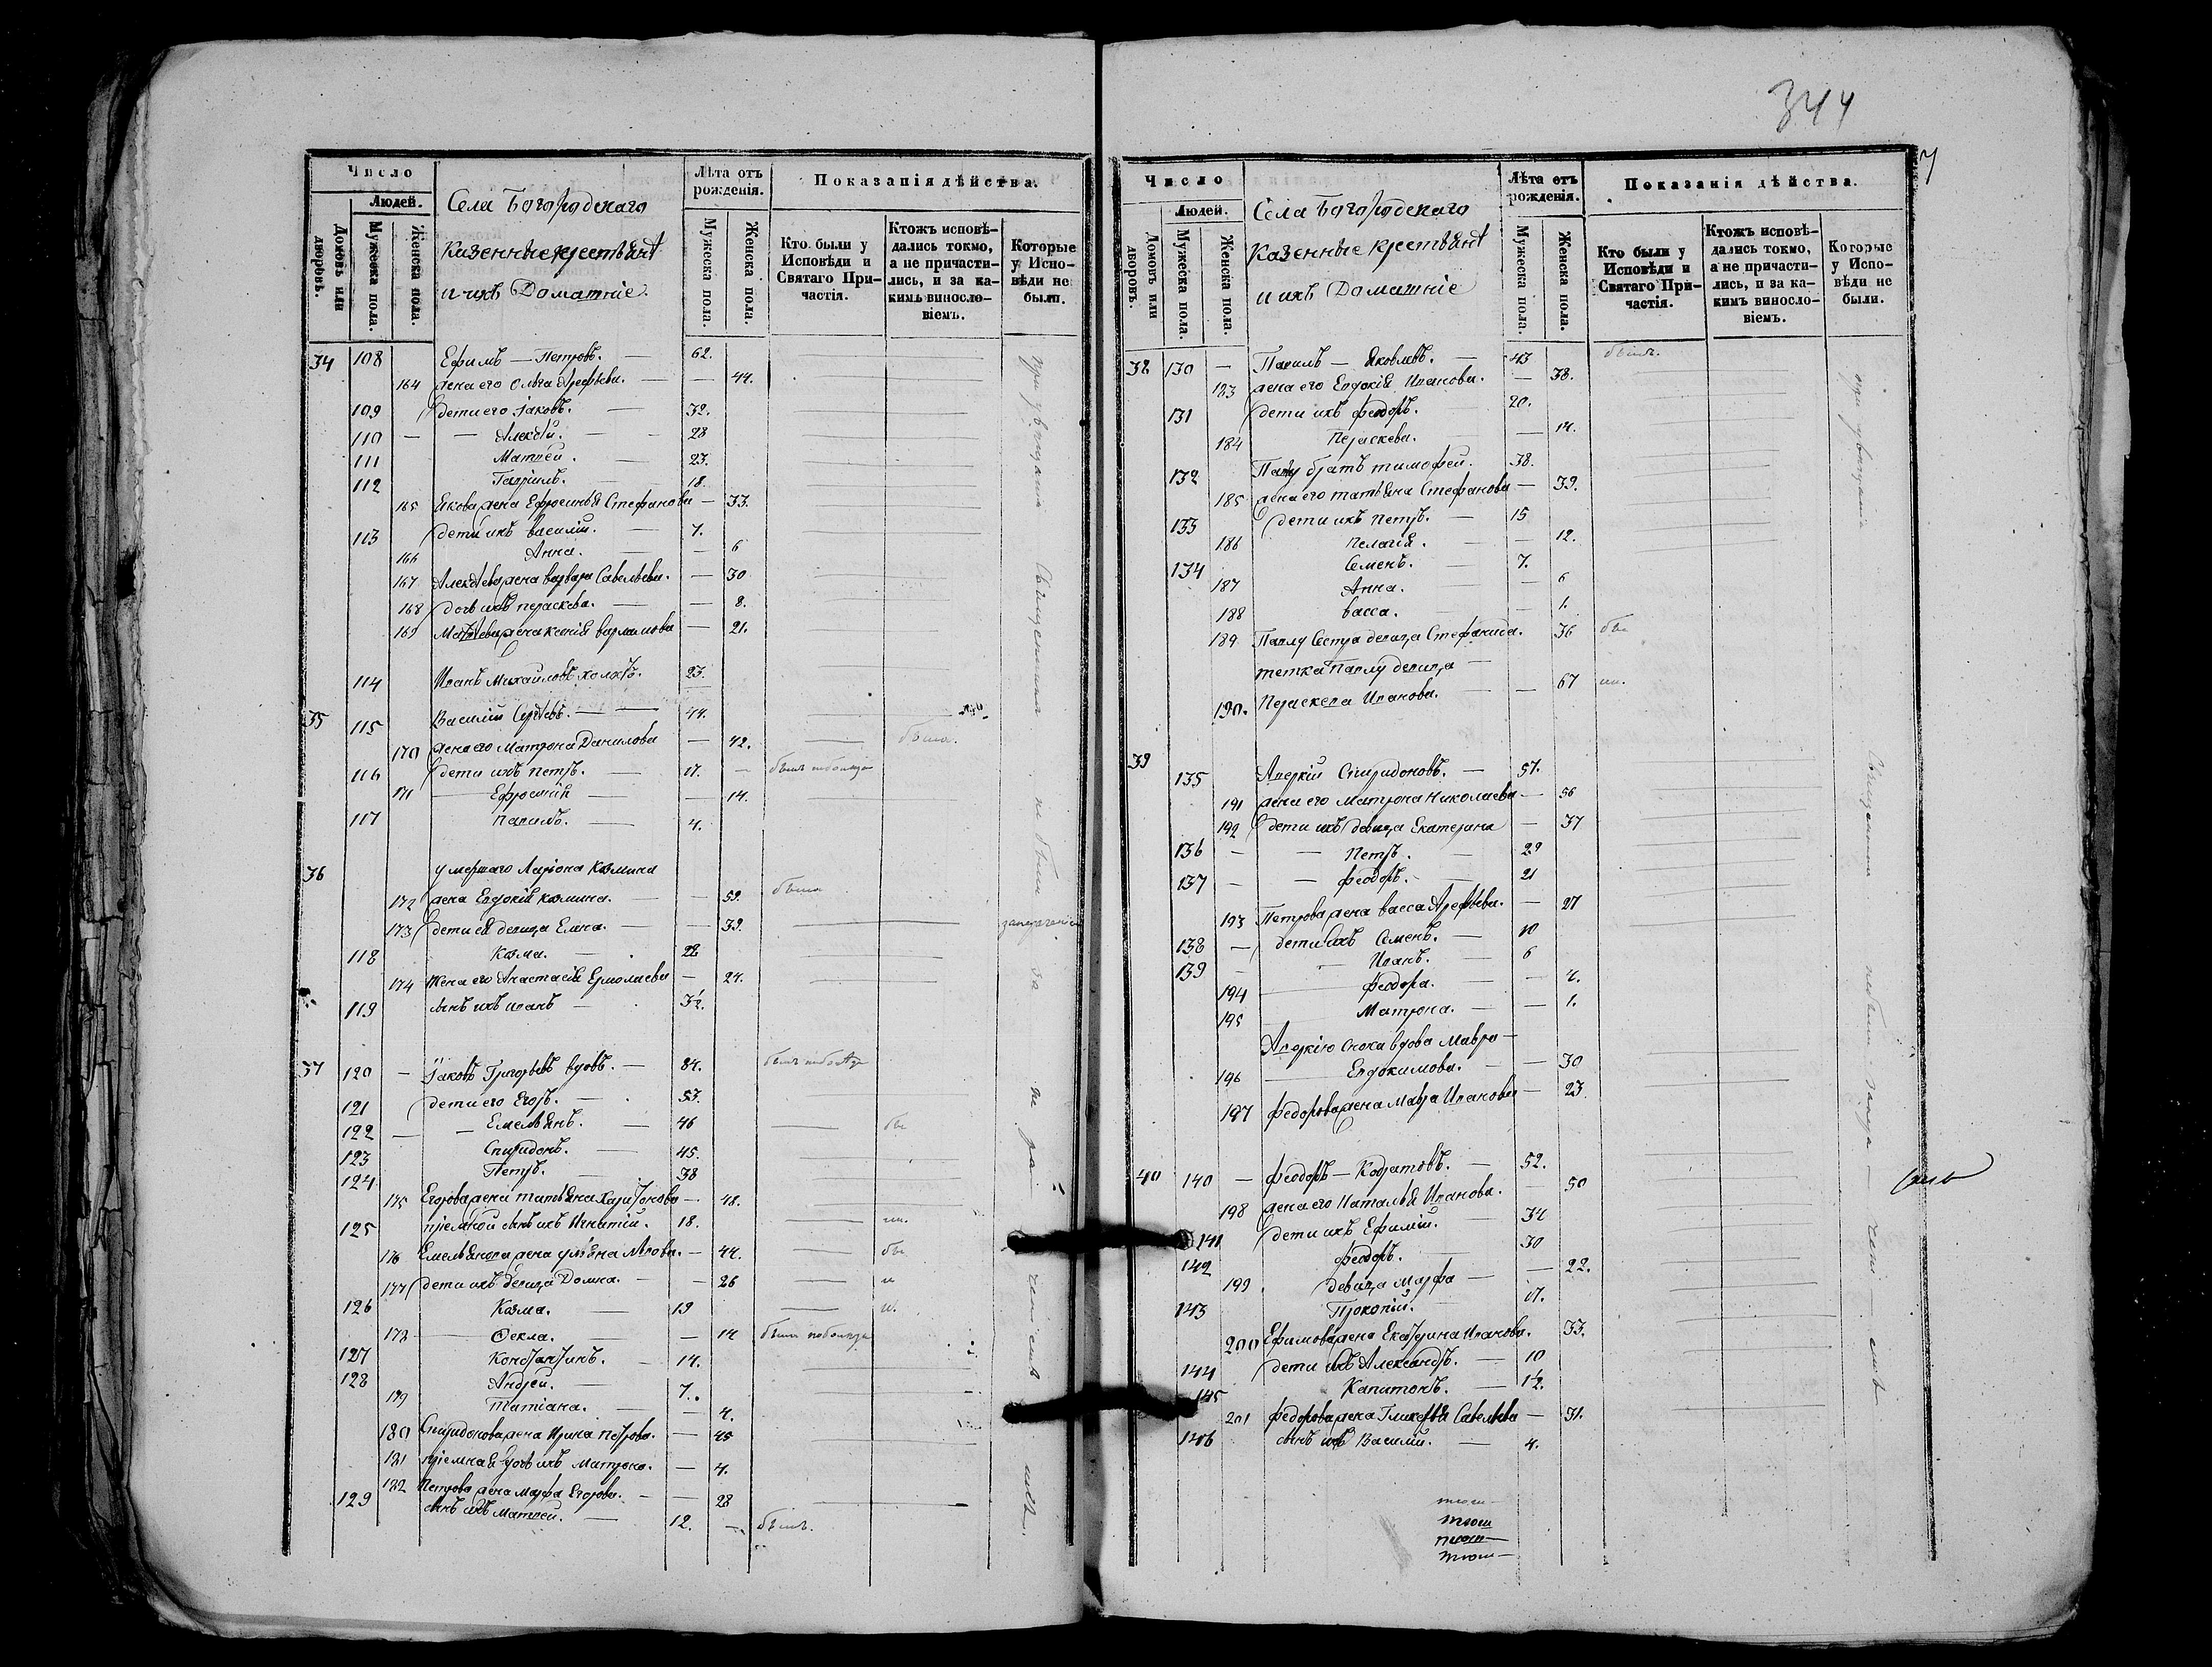 344
7
Число
Людей.
Домовъ или дворовъ.
Мужеска пола.
Женска пола.
Села Богородскаго
казенные крестьянѣ
и ихъ Домашніе
Лѣта отъ рожденія.
Мужеска пола.
Женска пола.
Показанія дѣйства.
Кто были у Исповѣди и Святаго Причастія.
Ктожъ исповѣдались токмо, а не причастились, и за какимъ винословіемъ.
Которые у Исповѣди не были.
34 108 Ефимъ — Петровъ. 62.
164 жена его Ольга Арефьева. — 44.
109 дети его Іаковъ. — 32.
110 — — Алексѣй. — 28
111 Матвей. 23.
112 Гавріилъ. 18.
165 Якова жена Ефросинья Стефанова — 33.
113 дети ихъ василій. 7.
166 Анна. — 6
167 Алексѣева жена варвара Савельева. — 30
168 дочь ихъ параскева. — 8.
169 Матвѣева жена ксенія варламова — 21.
114 Иванъ Михайловъ холостъ. 23.
35 115 Василій Сергѣевъ. — 44.
170 жена его Матрона Данилова — 42. — была.
116 дети ихъ петръ. — 17. —
171 Ефросинія — 14.
117 павилъ. — 4.
36 умершаго Ларіона Козмина
172 жена Евдокія козмина. — 59. была
173 дети ея девица Елена. — 39.
118 Козма. — 22
174 Жена его Анастасія Ермолаева — 24.
119 сынъ ихъ иванъ — 3½.
37 120 — Іаковъ Григорьевъ вдовъ. — 84.
121 дети его Егоръ. — 53.
122 — — Емельянъ. — 46
123 Спиридонъ. — 45.
124 Петръ. 38
175 Егорова жена татьяна Харитонова — 48.
125 пріемной сынъ ихъ Игнатій. 18.
176 Емельянова жена ульяна Львова. — 44.
177 дети ихъ девица Домна. — 26
126 Козма. — 19
178 Ѳекла. — 14
127 Константинъ. — 14.
128 Андрей. — 7.
179 Татіана. — 4.
180 Спиридонова жена Ирина петрова. — 45
181 пріемная дочь ихъ Матрона. — 4.
182 Петрова жена марфа Егорова. — 28
129 сынъ ихъ Матвей. — 12. — былъ.
Число
Людей.
Домовъ или дворовъ.
Мужеска пола.
Женска пола.
Села Богородскаго
казенные крестьянѣ
и ихъ Домашніе
Лѣта отъ рожденія.
Мужеска пола.
Женска пола.
Показанія дѣйства.
Кто были у Исповѣди и Святаго Причастія.
Ктожъ исповѣдались токмо, а не причастились, и за какимъ винословіемъ.
Которые у Исповѣди не были.
38 130 — Павилъ — Яковлевъ. — 43 былъ.
183 жена его Евдокія Иванова. — 38.
131 дети ихъ феодоръ. 20.
184 Параскева. — 14.
132 Павлу братъ тимофей. 38.
185 жена его татьяна Стефанова — 39.
133 дети ихъ петръ. — 15
186 пелагія. — 12.
134 Семенъ. — 7.
187 Анна. — 6
188 васса. — 1.
189 Павлу Сестра девица Стефанида. 36
тетка Павлу девица —
190. Параскева Иванова. — 67
39 135 Аверкій Спиридоновъ. — 57.
191 жена его Матрона Николаева — 56
192 дети ихъ девица Екатерина — 37
136 — — Петръ. — 29
137 — — феодоръ. — 21
193 Петрова жена васса Арефьева. — 27
138 — дети ихъ Семенъ. — 10
139 — — Иванъ. — 6
194 феодора. — 4.
195 Матрона. — 1.
Аверкію сноха вдова Мавра —
196 Евдокимова. — 30
197 федорова жена Мавра Иванова — 23.
40 140 — феодоръ — Кодратовъ. — 52.
198 жена его Наталья Иванова. — 50
141 дети ихъ Ефимій. — 34
142 феодоръ. 30
199 девица марфа — 22.
143 Прокопій. — 17.
200 Ефимова жена Екатерина Иванова. 33.
144 дети ихъ Александръ. — 10
145 Капитонъ. — 1½.
201 федорова жена Гликерія Савельева — 31.
146 сынъ ихъ Василій. — 4.